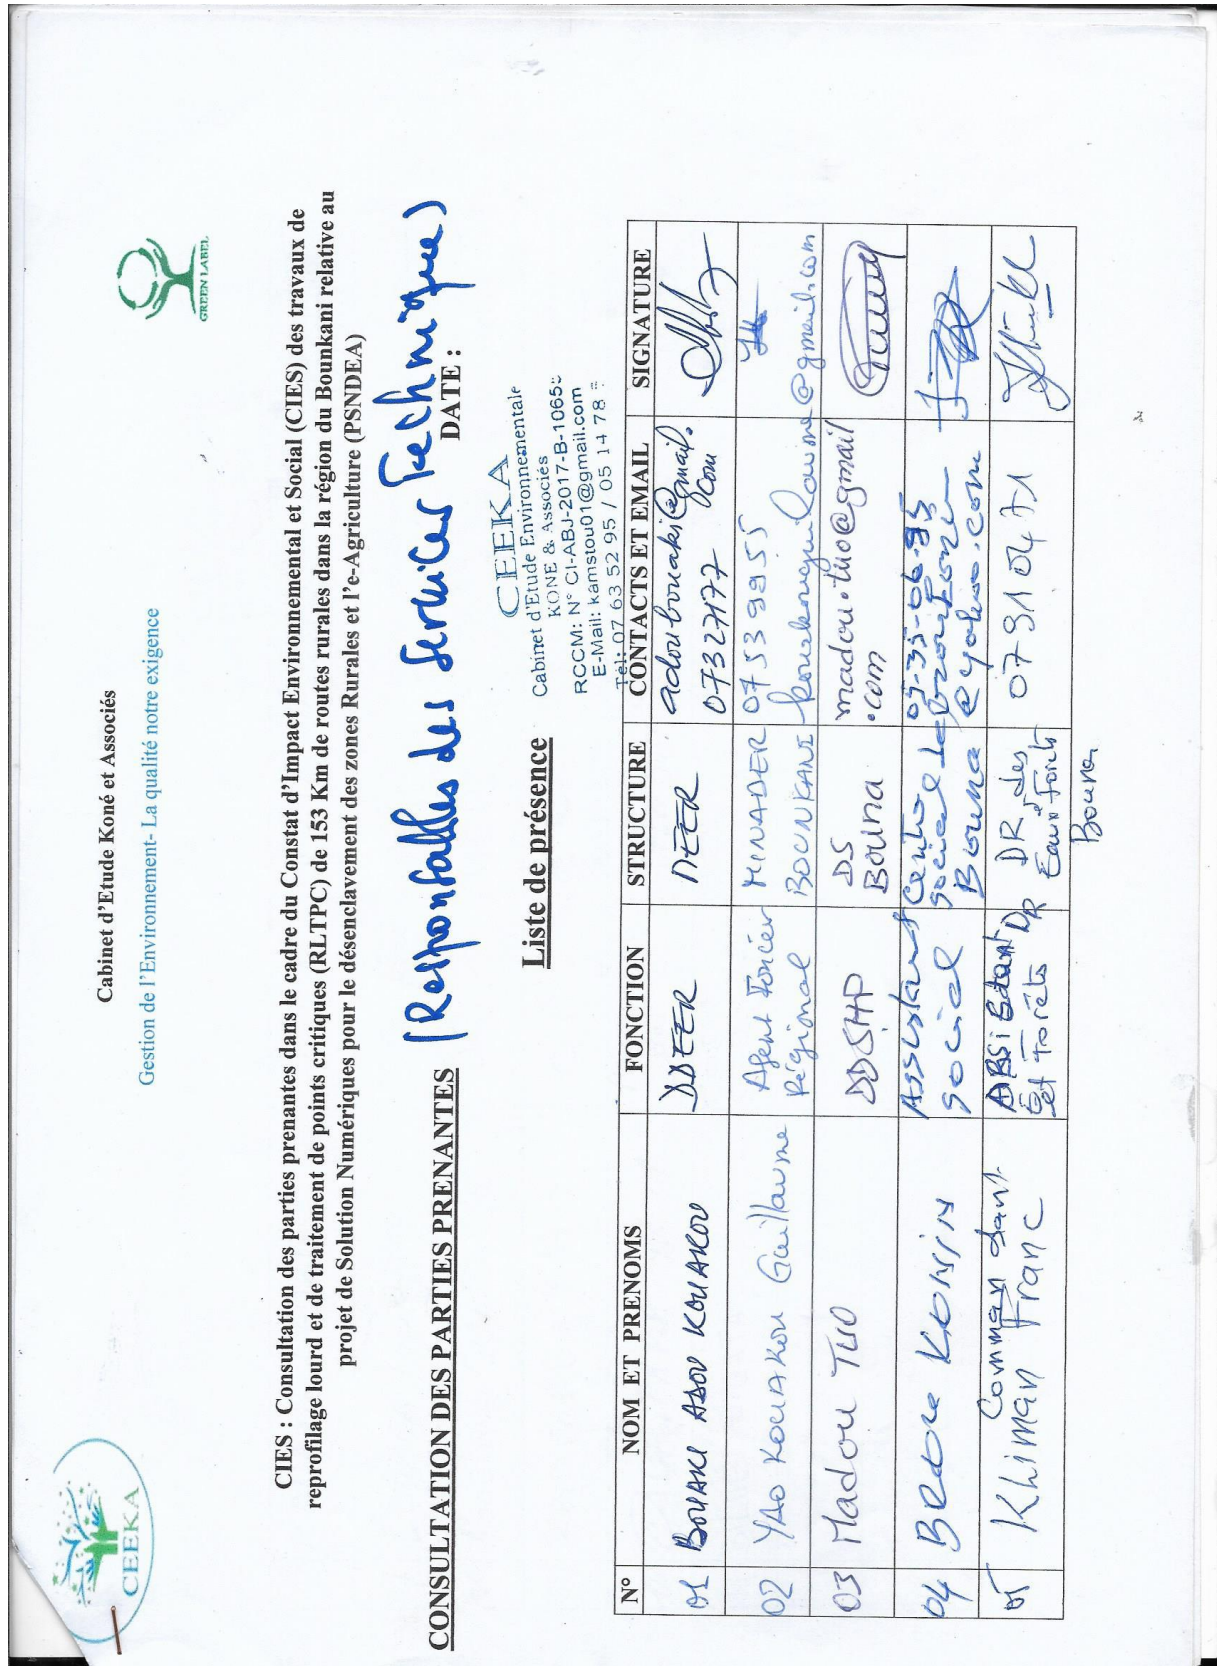 CEEKA
Cabinet d'Etude Koné et Associés
Gestion de l'Environnement- La qualité notre exigence
GREEN LABEL
CIES : Consultation des parties prenantes dans le cadre du Constat d'Impact Environnemental et Social (CIES) des travaux de
reprofilage lourd et de traitement de points critiques (RLTPC) de 153 Km de routes rurales dans la région du Bounkani relative au
projet de Solution Numériques pour le désenclavement des zones Rurales et l'e-Agriculture (PSNDEA)
CONSULTATION DES PARTIES PRENANTES (Responsables des Services Techniques)
DATE :
CEEKA
Cabinet d'Etude Environnementale
KONE & Associés
RCCM: N° CI-ABJ-2017-B-1065
E-Mail: kamstou01@gmail.com
Tél: 07 63 52 95 / 05 14 78
Liste de présence
N° NOM ET PRENOMS FONCTION STRUCTURE CONTACTS ET EMAIL SIGNATURE
01 BOUAKI ADOU KOUAKOU DDEER DEER adoubouaki@gmail.com 07327177
02 YAO KOUAKOU Guillaume Agent Foncier Régional MINADER BOUNKANI 07539955
03 Madou TUO DDSHP DS Bouna madou.tuo@gmail.com
04 Assistant Social Centre Social de Bouna @yahoo.com
05 Commandant Khiman Franc DR des Eaux et Forêts Bouna 07910471